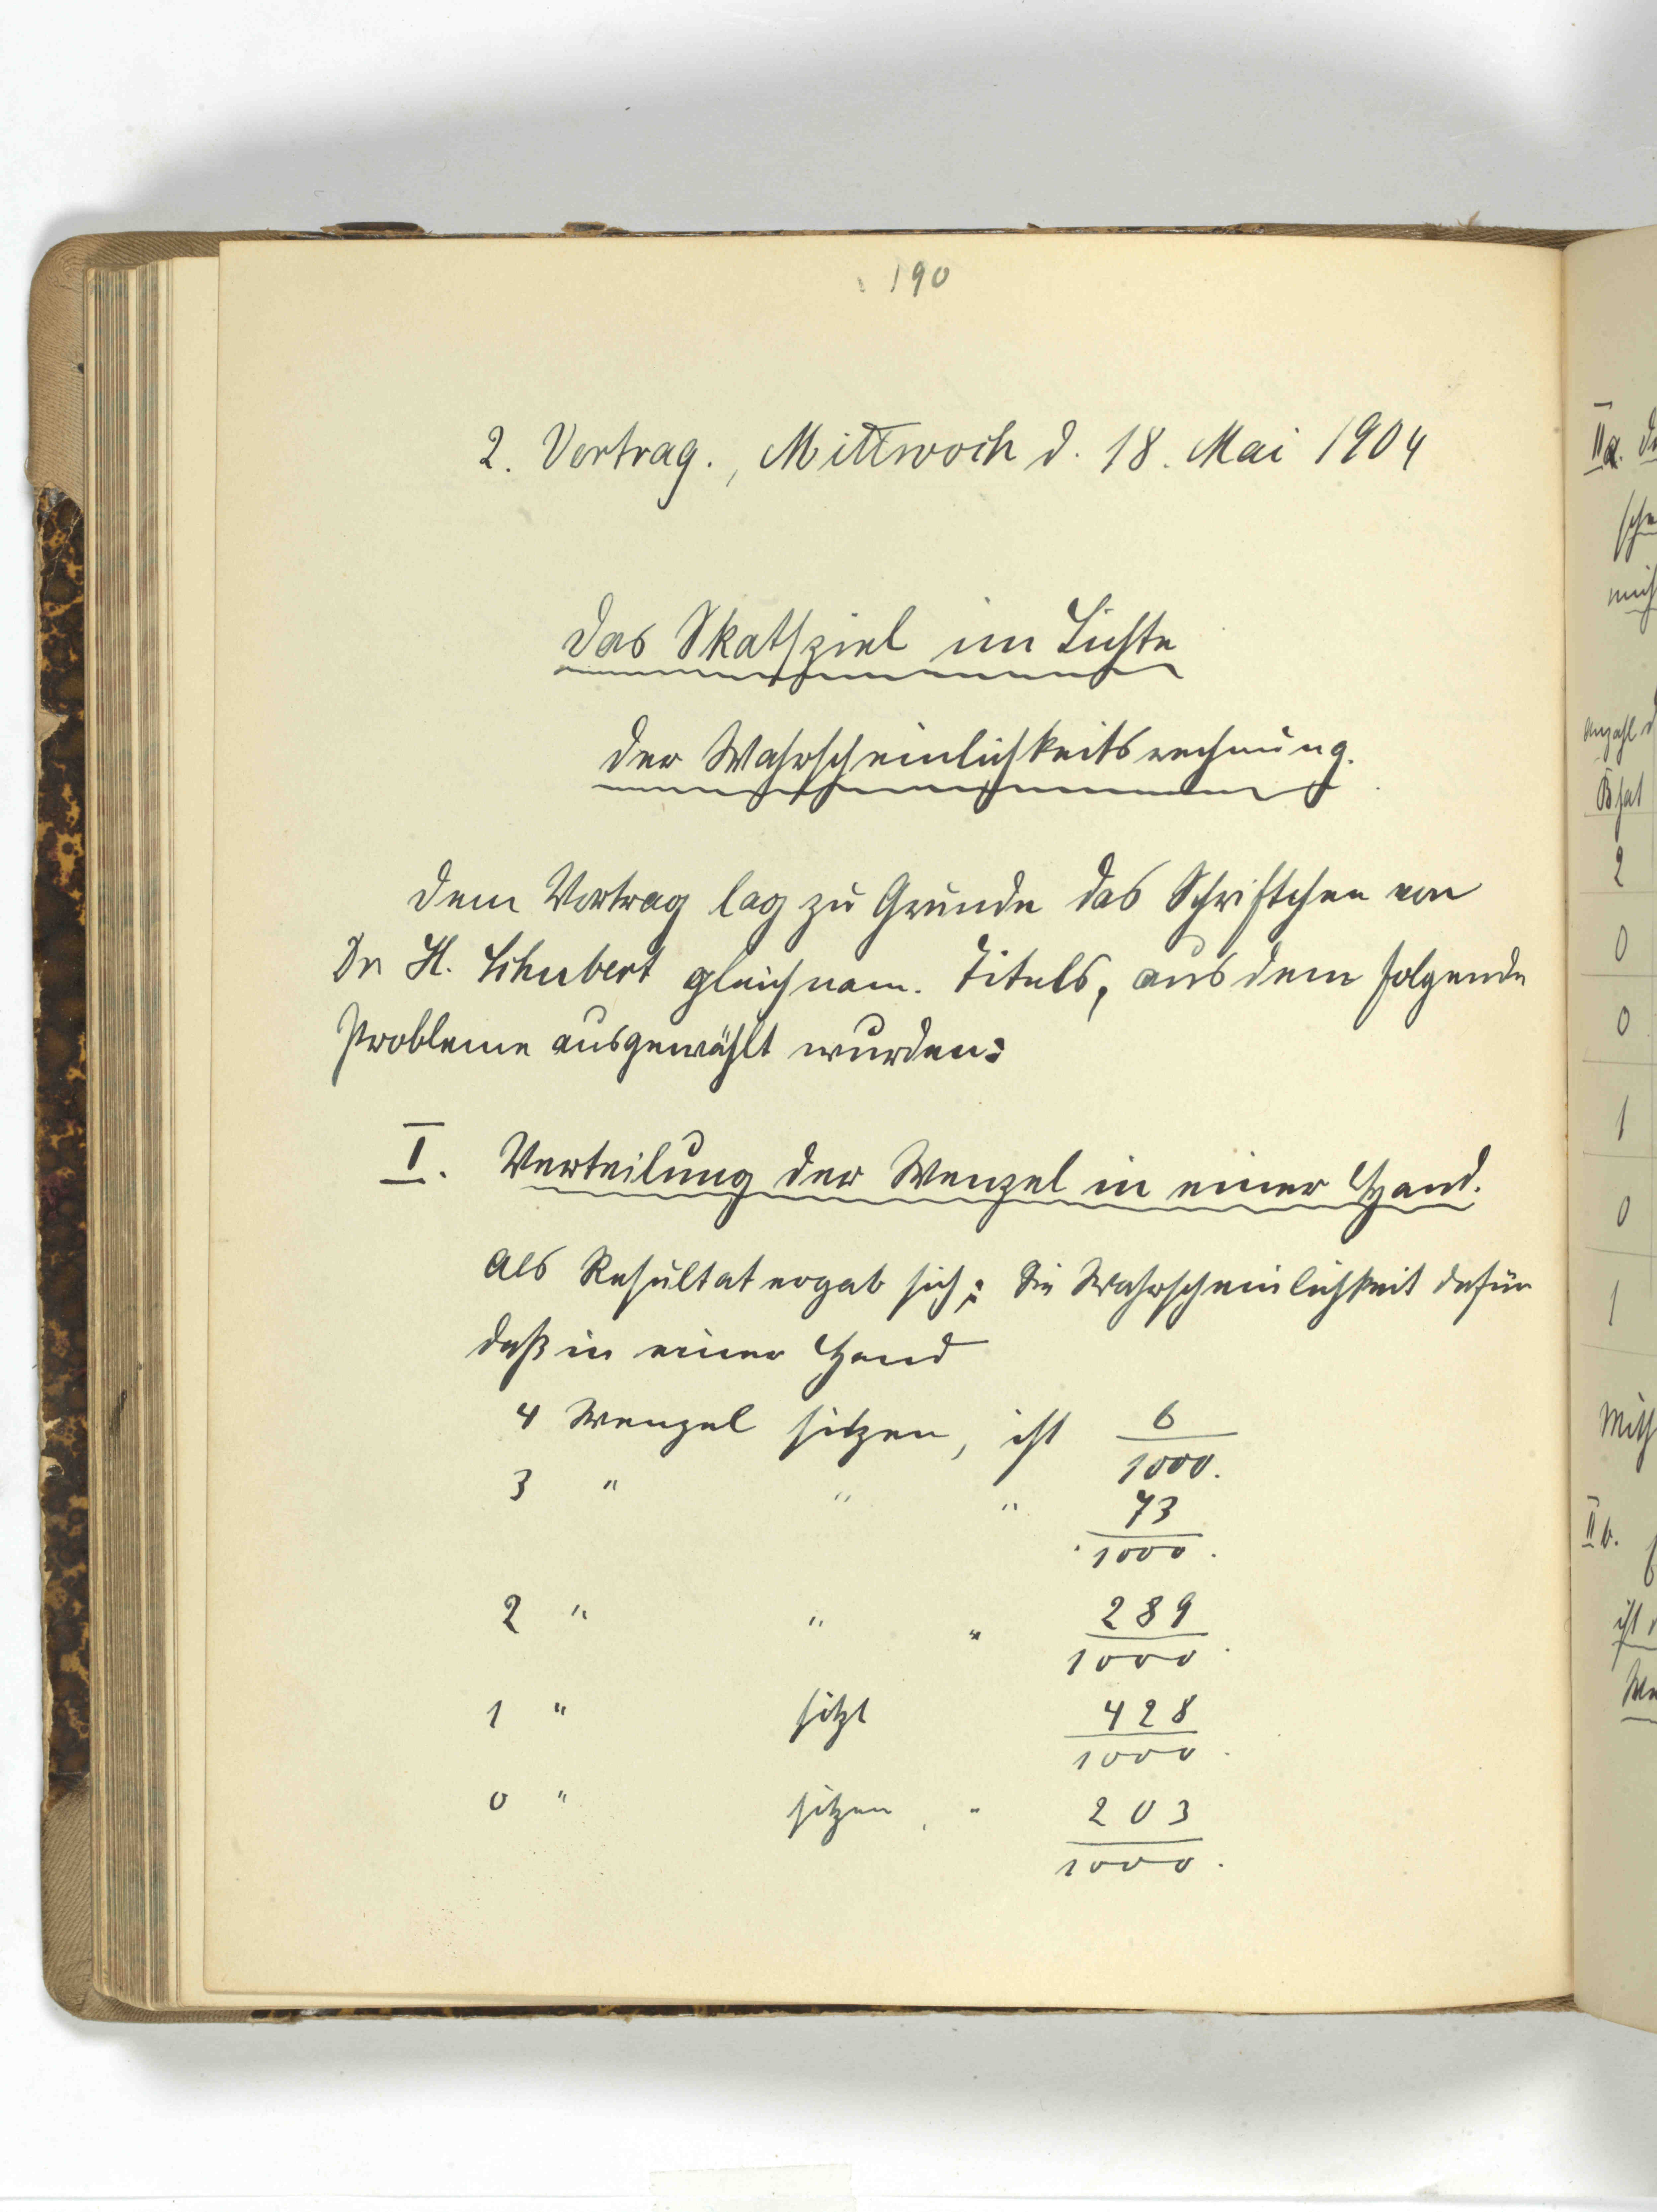 190
2. Vortrag., Mittwoch d. 18. Mai 1904
Das Skatspiel im Lichte
der Wahrscheinlichkeitsrechnung.
Dem Vortrag lag zu Grunde das Schriftchen von
Dr H. Schubert gleichnam. Titels, aus dem folgende
Probleme ausgewählt wurden:
I. Verteilung der Wenzel in einer Hand.
Als Resultat ergab sich: Die Wahrscheinlichkeit dafür
daß in einer Hand
4 Wenzel sitzen, ist 6/1000.
3 " " " 73/1000.
2 " " " 289/1000.
1 " sitzt 428/1000.
0 " sitzen, " 203/1000.
IIa.
Anzahl d
B hat
2
0
0
1
0
1
IIb.
ist